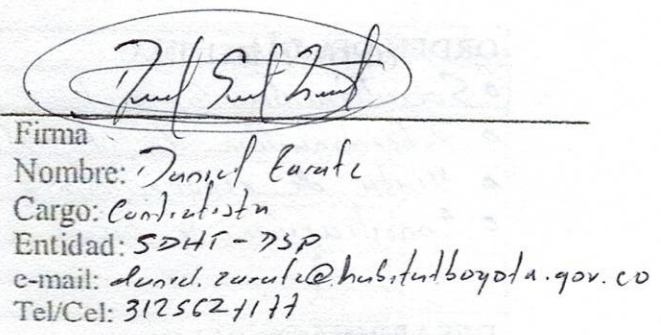 Firma
Nombre: Daniel Zarate
Cargo: Contratista
Entidad: SDHT - DSP
e-mail: daniel.zarate@habitatbogota.gov.co
Tel/Cel: